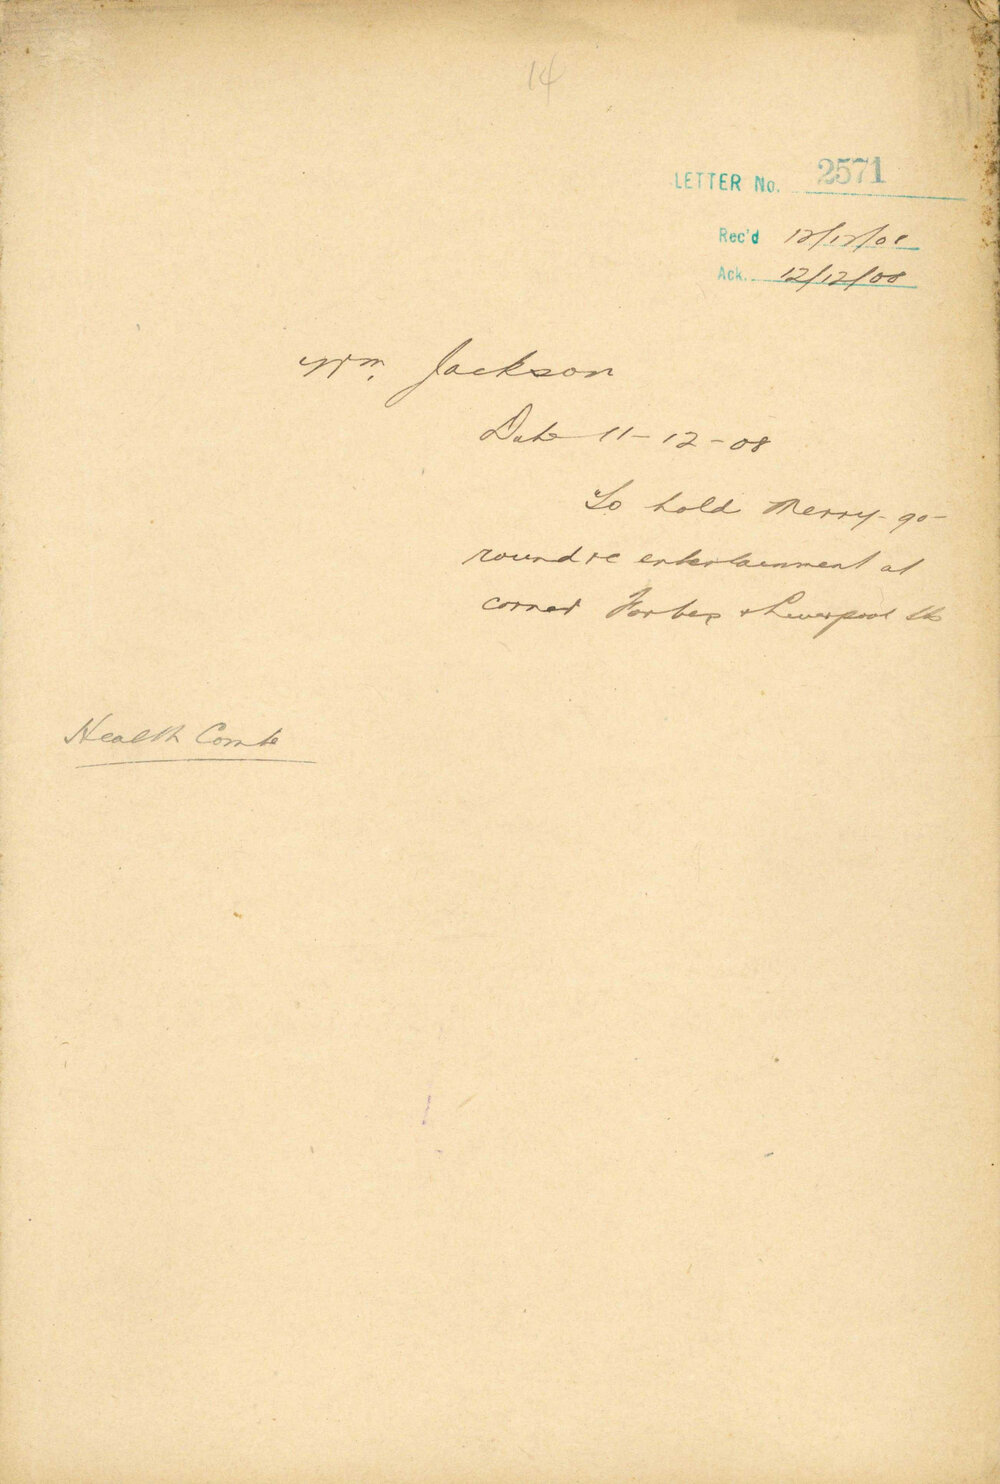 14
LETTER No. 2571
Rec'd 12/12/08
Ack. 12/12/08
Wm. Jackson
Date 11-12-08
To hold Merry-go-
round &c entertainment at
corner Forbes & Liverpool Sts
Health Comte